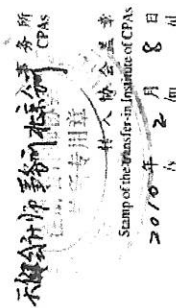 事务所
CPAs
天健会计师事务所
专用章
转入协会盖章
Stamp of the transfer-in Institute of CPAs
2010年2月8日
/y /m /d